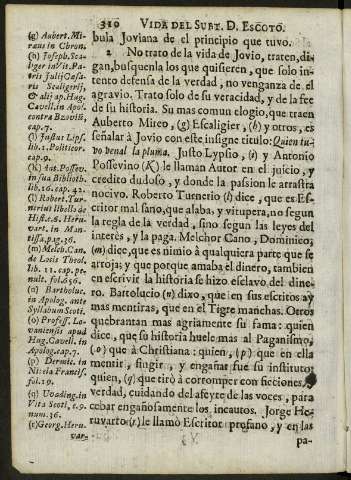 310 VIDA DEL SUBT. D. ESCOTO.
bula Joviana de el principio que tuvo.
2 No trato de la vida de Jovio, traten, digan,
busquenla los que quisieren, que solo intento
defensa de la verdad, no venganza de el
agravio. Trato solo de su veracidad, y de la fee
de su historia. Su mas comun elogio, que traen
Auberto Mireo, (g) Escaligier, (h) y otros, es
señalar à Jovio con este insigne titulo: Quien tuvo
venal la pluma. Justo Lypsio, (i) y Antonio
Possevino (K) le llaman Autor en el juicio, y
credito dudoso, y donde la passion le arrastra
nocivo. Roberto Turnerio (l) dice, que es Escritor
mal sano, que alaba, y vitupera, no segun
la regla de la verdad, sino segun las leyes del
interès, y la paga. Melchor Cano, Dominico,
(m) dice, que es nimio à qualquiera parte que se
arroja; y que porque amaba el dinero, tambien
en escrivir la historia se hizo esclavo del dinero.
Bartolucio (n) dixo, que en sus escritos ay
mas mentiras, que en el Tigre manchas. Otros
quebrantan mas agriamente su fama: quien
dice, que su historia huele mas al Paganismo,
(o) que à Christiana: quien, (p) que en ella
mentir, fingir, y engañar fue su instituto:
quien, (q) que tirò à corromper con ficciones,
verdad, cuidando del afeyte de las voces, para
cebar engañosamente los incautos. Jorge Heruvarto
(r) le llamò Escritor profano, y en las
pa-
(g) Aubert. Miraus
in Chron.
(h) Joseph. Scaliger
in Vit. Patris
Julij Casaris
Scaligerij,
& alij ap. Hug.
Cavell. in Apol.
contra Bzoviũ,
cap. 7.
(i) Justus Lips.
lib. 1. Politicor.
cap. 9.
(K) Ant. Possev.
in sua Biblioth.
lib. 16. cap. 42.
(l) Robert. Turnerius
libello de
Hist. c. 8. Heruvart.
in Mantissa,
pag. 36.
(m) Melch. Can.
de Locis Theol.
lib. 11. cap. penult.
fol. 656.
(n) Bartholuc.
in Apolog. ante
Syllabum Scoti.
(o) Profess. Lovaniensis
apud
Hug. Cavell. in
Apolog. cap. 7.
(p) Dermic. in
Nitela Francisc.
fol. 19.
(q) Uvading. in
Vita Scoti, c. 9.
num. 36.
(r) Georg. Heruvar-